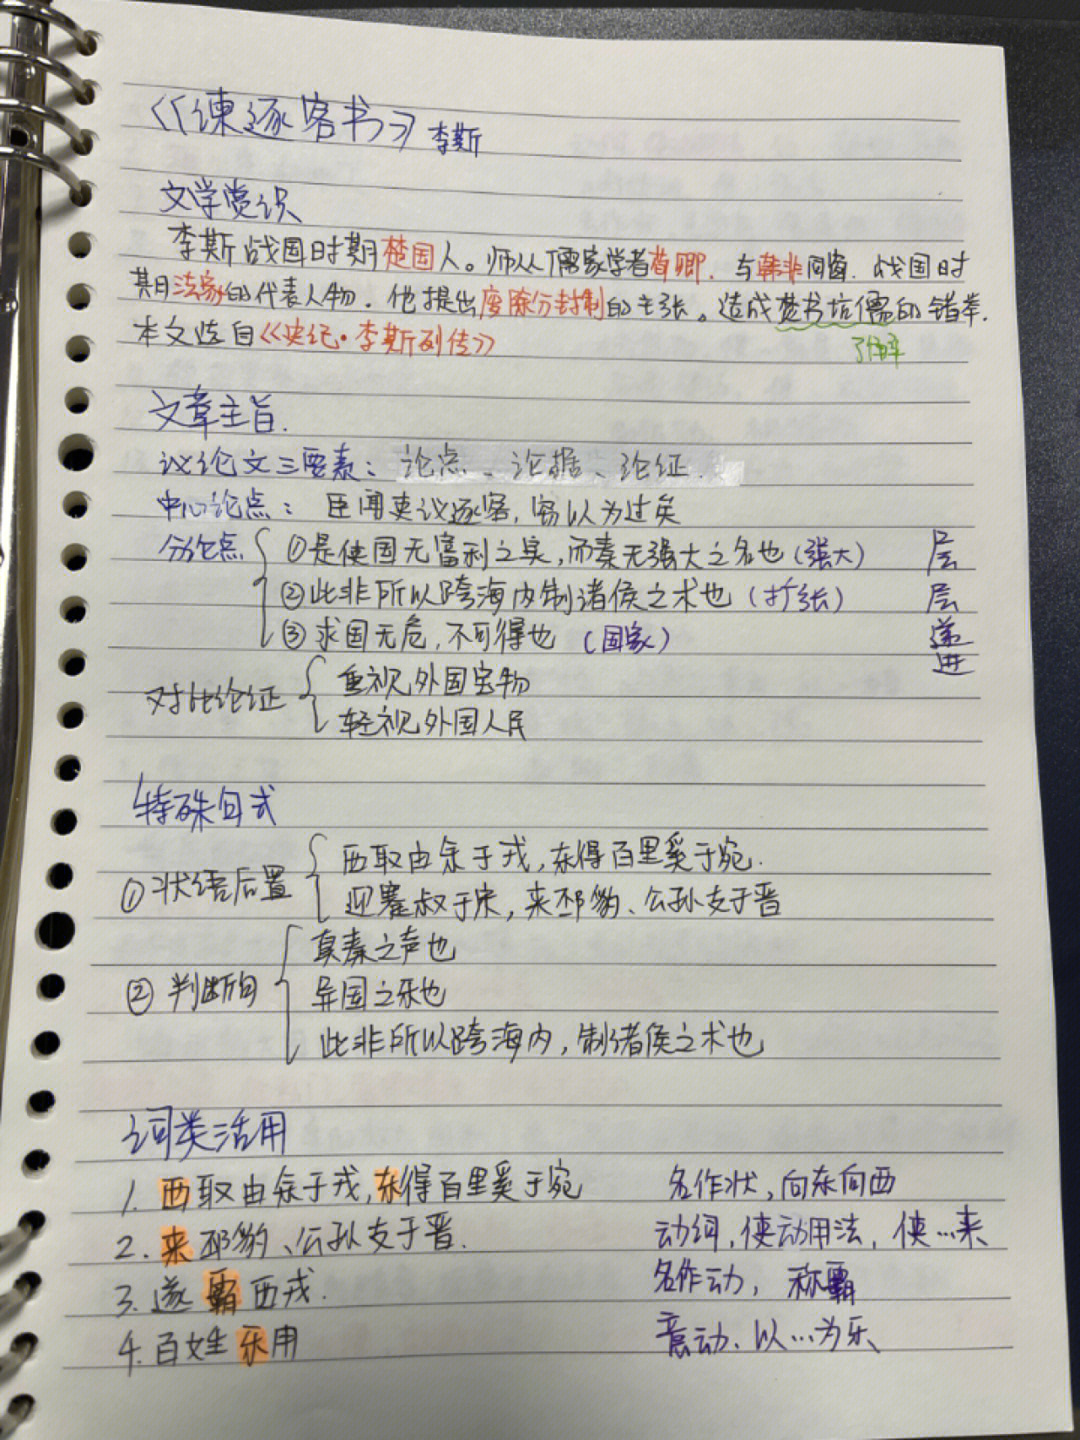 《谏逐客书》李斯
文学赏识
李斯战国时期楚国人。师从儒家学者荀卿.与韩非同窗.战国时
期法家的代表人物.他提出废除分封制的主张。造成焚书坑儒的错举.
了解
本文选自《史记·李斯列传》
文章主旨.
议论文三要素:论点、论据、论证.
中心论点:臣闻吏议逐客,窃以为过矣
分论点 ①是使国无富利之实,而秦无强大之名也(强大) 层
②此非所以跨海内制诸侯之术也(扩张) 层
③求国无危,不可得也(国家) 递进
对比论证 重视外国宝物
轻视外国人民
特殊句式
①状语后置 西取由余于戎,东得百里奚于宛.
迎蹇叔于宋,来邳豹、公孙支于晋
②判断句 真秦之声也
异国之乐也
此非所以跨海内,制诸侯之术也
词类活用
1.西取由余于戎,东得百里奚于宛 名作状,向东向西
2.来邳豹、公孙支于晋. 动词,使动用法,使…来
3.遂霸西戎. 名作动,称霸
4.百姓乐用 意动.以…为乐